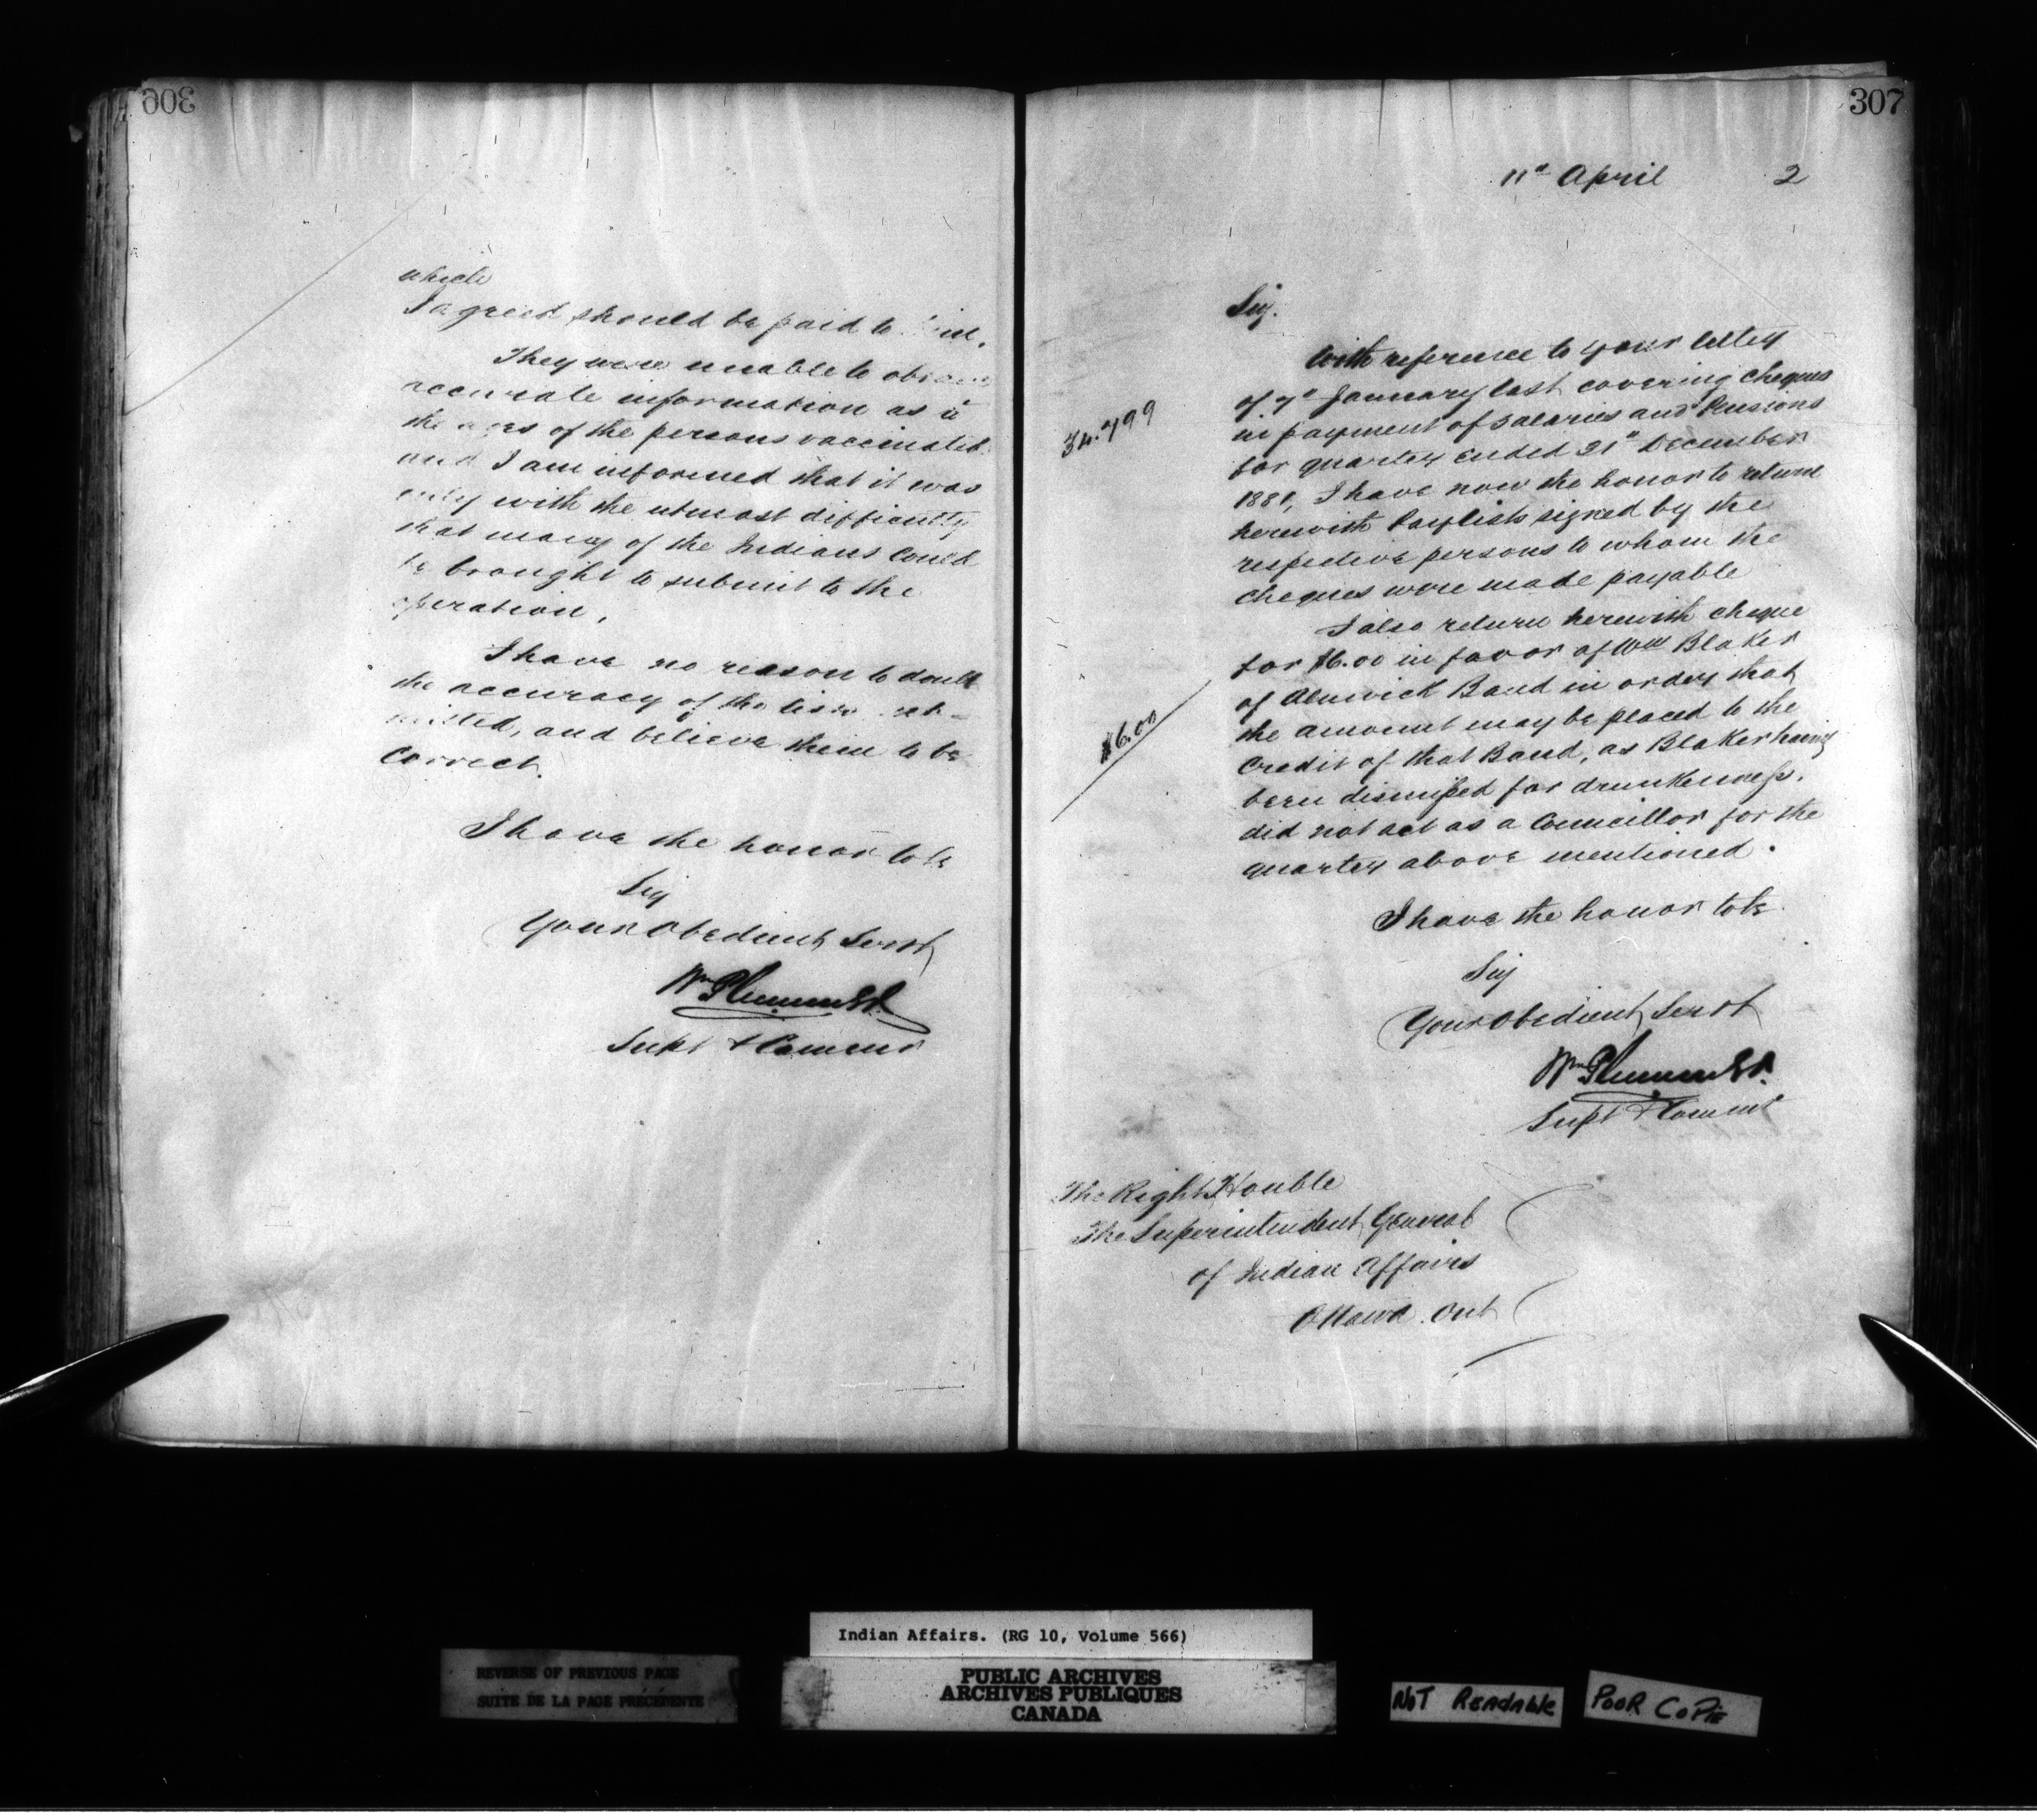 306
which
I agreed should be paid to
They were unable to obtain
accurate information as to
the ages of the persons vaccinated
and I am informed that it was
only with the utmost difficulty
that many of the Indians could
be brought to submit to the
operation.
I have no reason to doubt
the accuracy of the lists sub-
mitted, and believe them to be
correct.
I have the honor to be
Sir
Your obedient Servt
Wm Plummer
Supt & Commr
307
11th April 2
Sir.
With reference to your letter
34.799
of 7th January last covering cheques
in payment of salaries and Pensions
for quarter ended 31st December
1881, I have now the honor to return
herewith Paylists signed by the
respective persons to whom the
cheques were made payable
I also return herewith cheque
$6.00
for $6.00 in favor of Wm Blaker
of Alnwick Band in order that
the amount may be placed to the
credit of that Band, as Blaker having
been dismissed for drunkenness,
did not act as a Councillor for the
quarter above mentioned.
I have the honor to be
Sir
Your obedient Servt
Wm Plummer
Supt & Commr
The Right Honble
The Superintendent General
of Indian Affairs
Ottawa. Ont
Indian Affairs. (RG 10, Volume 566)
REVERSE OF PREVIOUS PAGE
SUITE DE LA PAGE PRÉCÉDENTE
PUBLIC ARCHIVES
ARCHIVES PUBLIQUES
CANADA
NOT READABLE
POOR COPIE